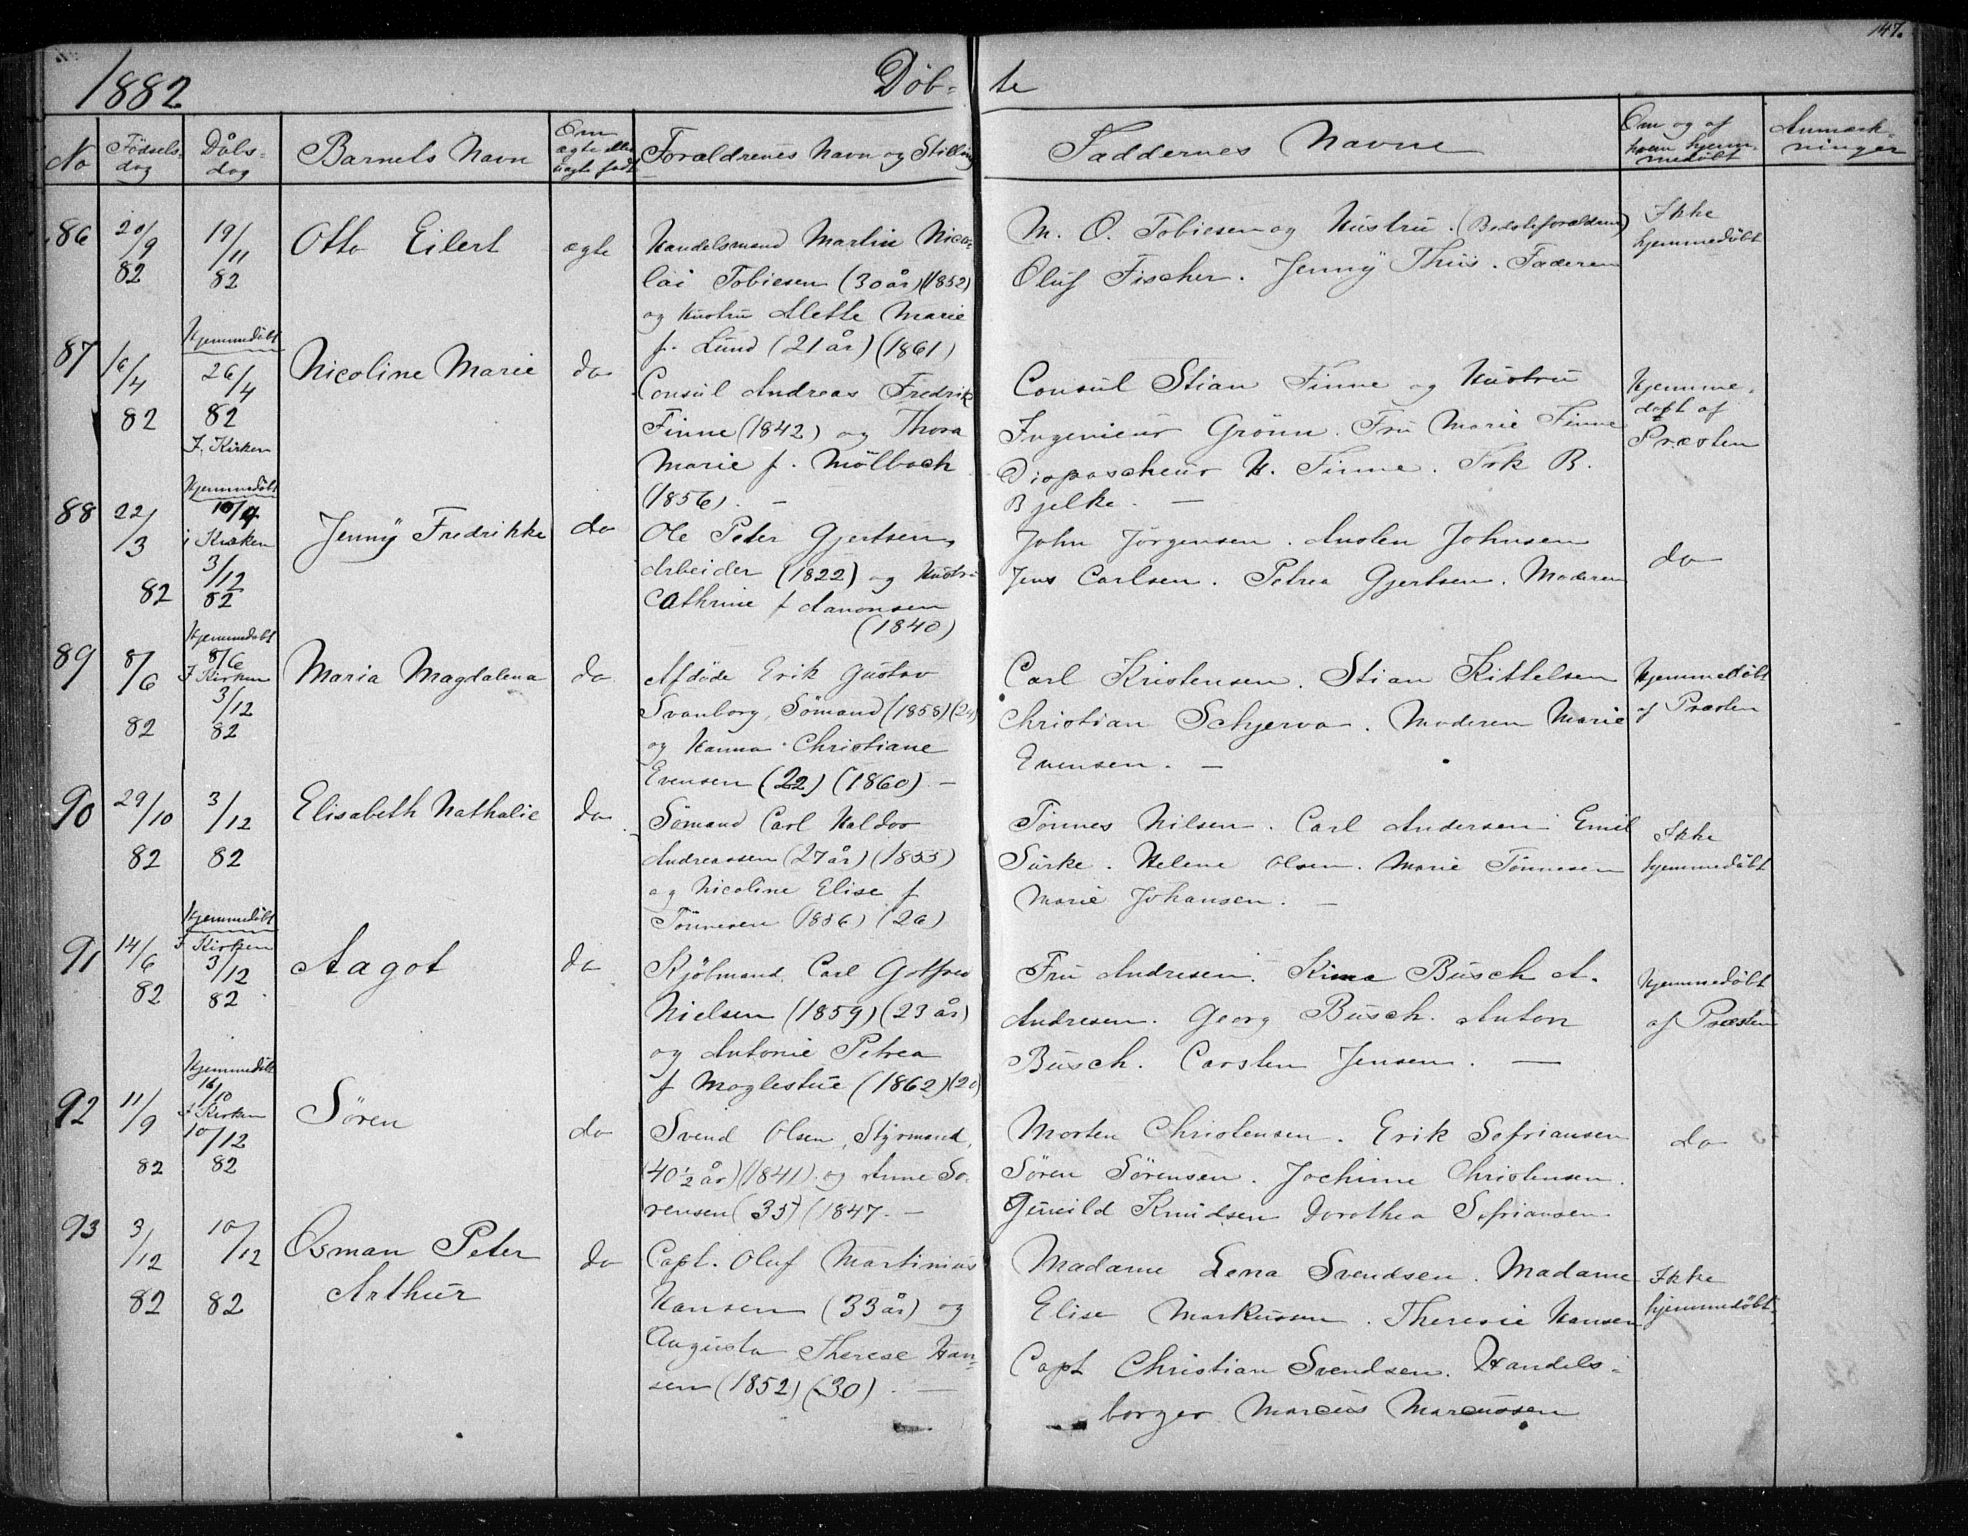 147.
1882
Døb- te
No
Fødsels-
dag
Dåbs-
dag
Barnets Navn
Om
ægte eller
uægte født
Forældrenes Navn og Stilling
Faddernes Navne
Om og af
hvem hjem-
medøbt
Anmærk-
ninger
86
20/9
82
19/11
82
Otto Eilert
ægte
Handelsmand Martin Nico-
lai Tobiesen (30 år) (1852)
og Hustru Mette Marie
f. Lund (21 år) (1861)
M. O. Tobiesen og Hustru. (Bedsteforældrene)
Oluf Fischer. Jenny Thiis. Faderen
Ikke
hjemmedøbt
87
16/4
82
Hjemmedøbt
26/4
82
I. Kirken
Nicoline Marie
do
Consul Andreas Fredrik
Finne (1842) og Thora
Marie f. Mölbach
(1856). —
Consul Stian Finne og Hustru
Ingenieur Grönn. Fru Marie Finne
H. Finne. Frk B.
Bjelke. —
Hjemme-
døpt af
Præsten
88
22/3
82
Hjemmedøbt
10/4
i Kirken
3/12
82
Jenny Fredrikke
do
Ole Peter Gjertsen,
Arbeider (1822) og Hustru
Cathrine f Aanonsen
(1840)
John Jørgensen. Austen Johnsen
Jens Carlsen. Petrea Gjertsen. Moderen
do
89
8/6
82
Hjemmedøbt
8/6
I Kirken
3/12
82
Maria Magdalena
do
Afdøde Erik Gustav
Svanborg, Sømand (1858) (24)
og Hanna Christiane
Evensen (22) (1860) —
Carl Kristensen. Stian Kittelsen
Christian Schjerva. Moderen Marie
Evensen. —
Hjemmedøbt
af Præsten
90
29/10
82
3/12
82
Elisabeth Nathalie
do
Sømand Carl Haldor
Andreassen (27 år) (1855)
og Nicoline Elise f
Tönnesen (1856) (26)
Tönnes Nilsen. Carl Andersen Emil
Sürke. Helene Olsen. Marie Tönnesen
Marie Johansen. —
Ikke
hjemmedøbt
91
14/6
82
Hjemmedøbt
I Kirken
3/12
82
Aagot
do
Kjøbmand. Carl Gotfred
Nielsen (1859) (23 år)
og Antonie Petrea
f Moglestue (1862) (20)
Fru Andresen. Kima Busch A.
Andresen. Georg Busch. Anton
Busch. Carsten Jensen. —
Hjemmedøbt
af Præsten
92
11/9
82
Hjemmedøbt
16/10
I Kirken
10/12
82
Søren
do
Svend Olsen, Styrmand,
(40 1/2 år) (1841) og Anne Sö-
rensen (35) (1847. —
Morten Christensen. Erik Sefriansen
Søren Sørensen. Jochime Christensen.
Gunild Knudsen Dorothea Sefriansen.
do
93
3/12
82
10/12
82
Osman Peter
Arthur
do
Capt. Oluf Martinius
Hansen (33 år) og
Augusta Therese Han-
sen (1852) (30). —
Madame Lena Svendsen. Madame
Elise Markussen. Theresie Hansen
Capt Christian Svendsen. Handels-
borger Marcus Marcussen
Ikke
hjemmedøbt